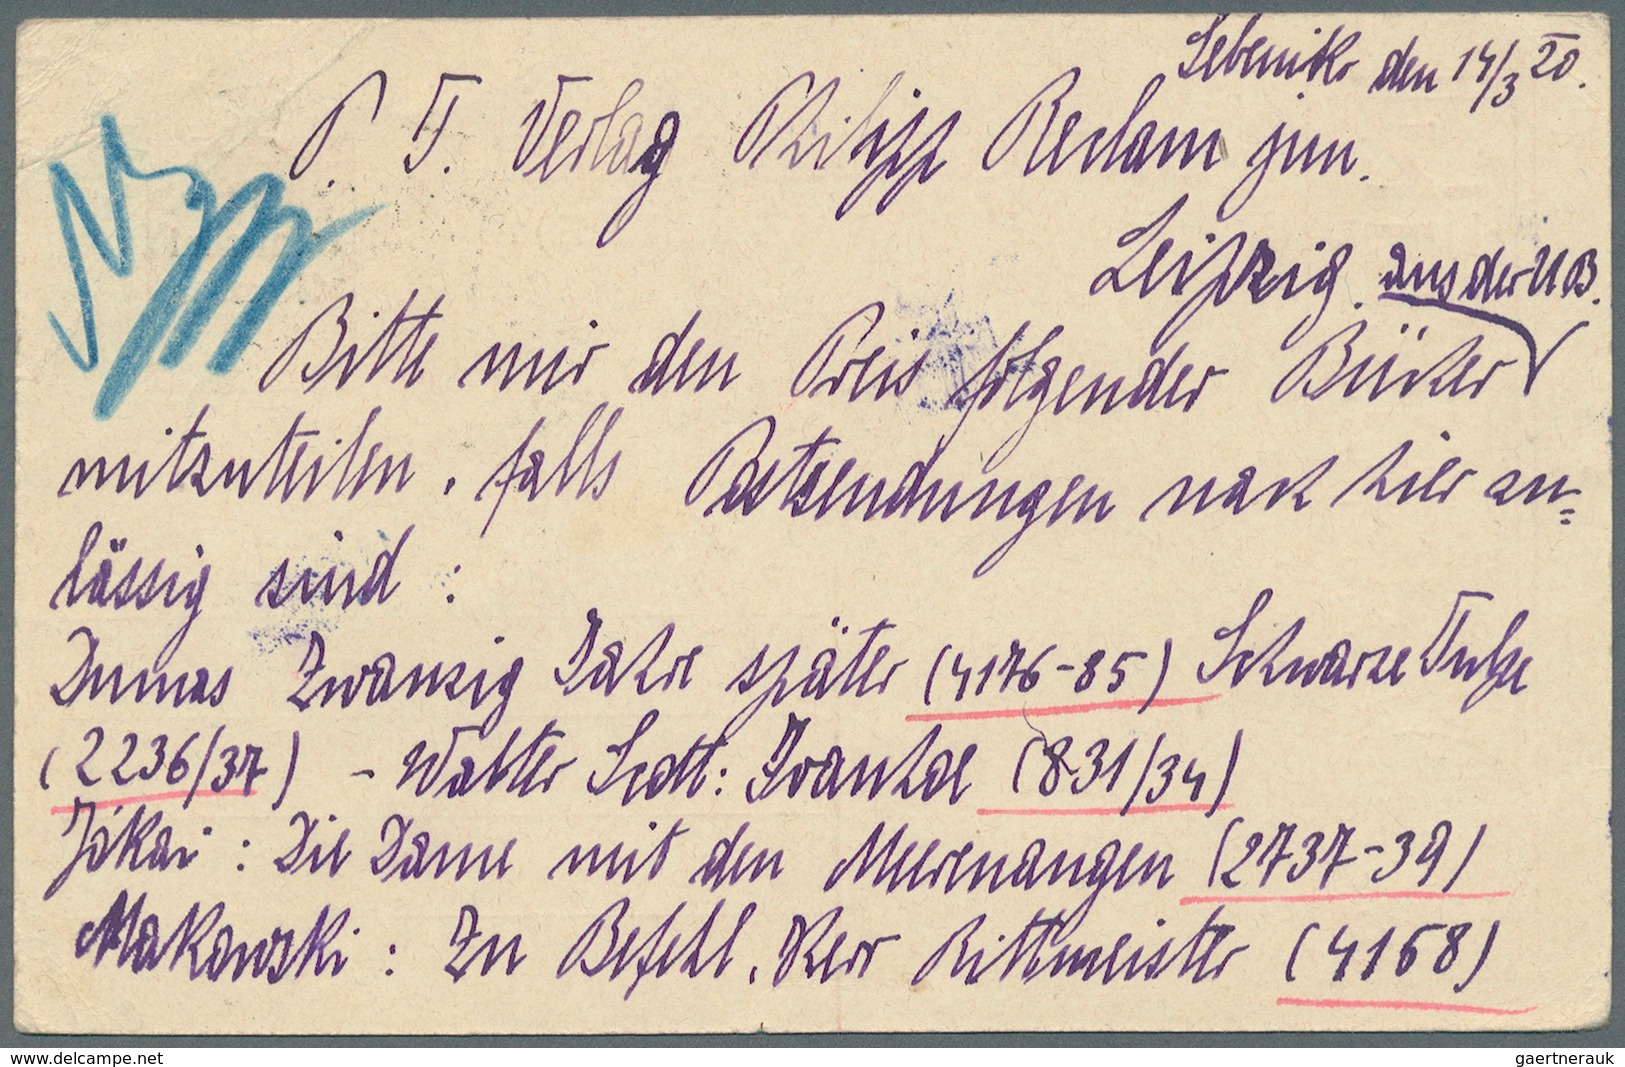 Sebenik den 14/3 20.
P. T. Verlag Philipp Reclam jun.
Leipzig. aus der U B.
Bitte mir den Preis folgender Bücher
mitzuteilen, falls Postsendungen nach hier zu=
lässig sind :
Dumas Zwanzig Jahre später (4176-85) Schwarze Tulpe
(2236/37) - Walter Scott: Ivanhoe (831/34)
Jókai : Die Dame mit den Meerenaugen (2737-39)
Makowski : Zu Befehl, Herr Rittmeister (4168)
www.delcampe.net
gaertnerauk